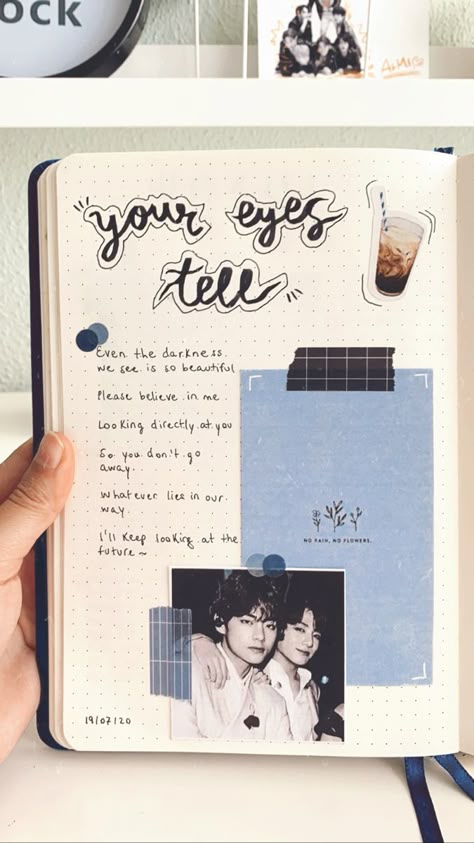 ock
your eyes
tell
Even the darkness
we see is so beautiful
Please believe in me
Looking directly at you
So you don't go
away.
whatever lies in our
way
I'll keep looking at the
future ~
NO PAIN, NO FLOWERS.
19/07/20